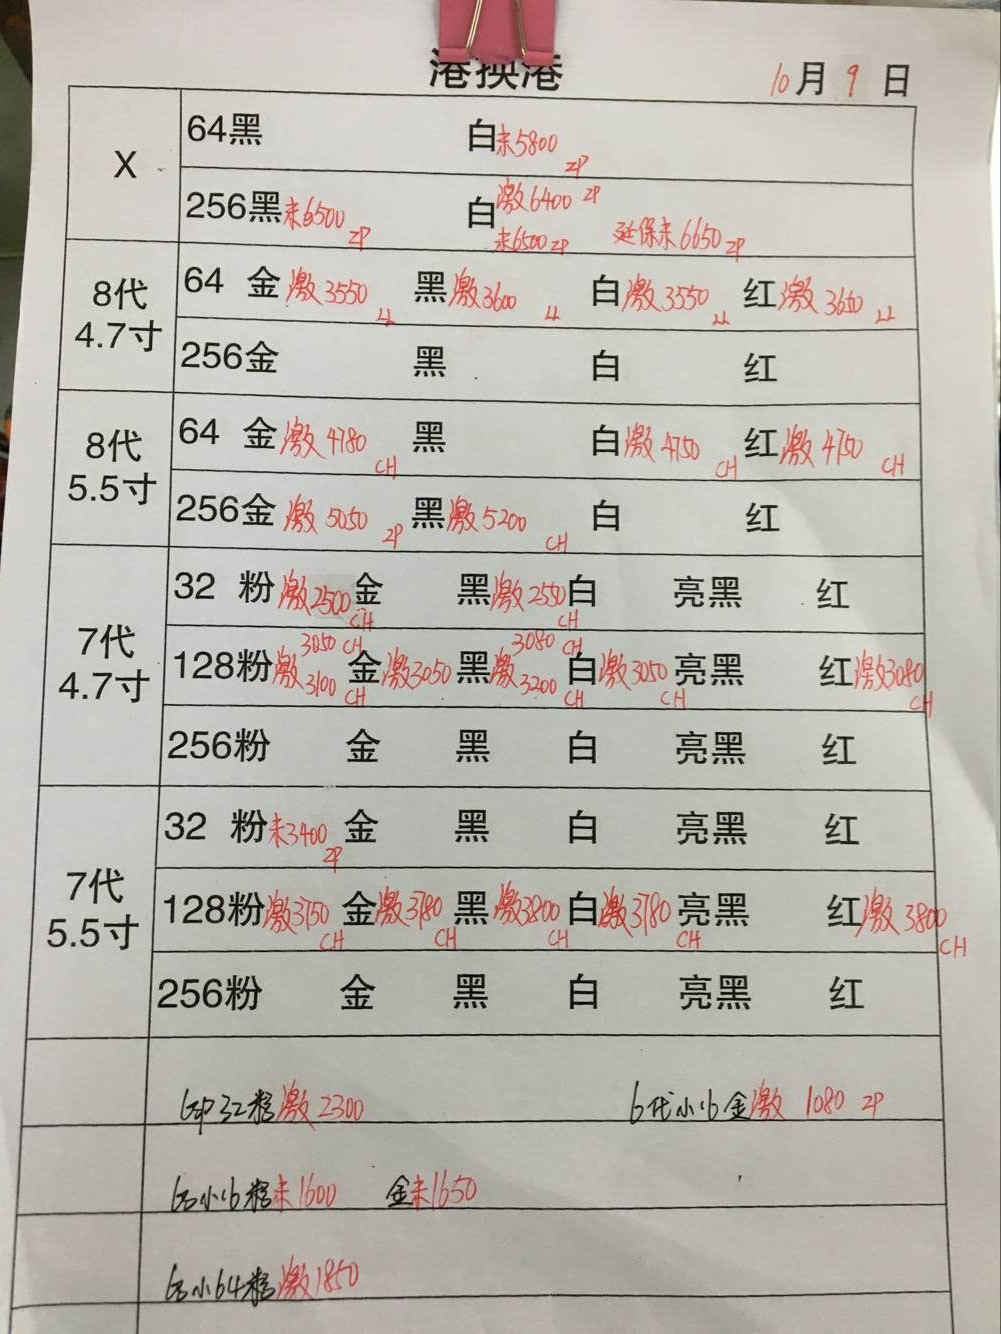 港换港 10月9日
X
64黑 白未5800 ZP
256黑未6500 ZP 白激6400 ZP
未6500 ZP 延保未6650 ZP
8代
4.7寸
64 金激3550 LL 黑激3600 LL 白激3550 LL 红激3600 LL
256金 黑 白 红
8代
5.5寸
64 金激4780 CH 黑 白激4750 CH 红激4750 CH
256金激5050 ZP 黑激5200 CH 白 红
7代
4.7寸
32 粉激2500 CH 金 黑激2550 CH 白 亮黑 红
3050 CH 3080 CH
128粉激3100 CH 金激3050 黑激3200 CH 白激3050 CH 亮黑 红激3080 CH
256粉 金 黑 白 亮黑 红
7代
5.5寸
32 粉未3400 ZP 金 黑 白 亮黑 红
128粉激3750 CH 金激3780 CH 黑激3800 CH 白激3780 CH 亮黑 红激3800 CH
256粉 金 黑 白 亮黑 红
6SP32粉激2300 6代小16金激 1080 ZP
6S小16粉未1600 金未1650
6S小64粉激1850